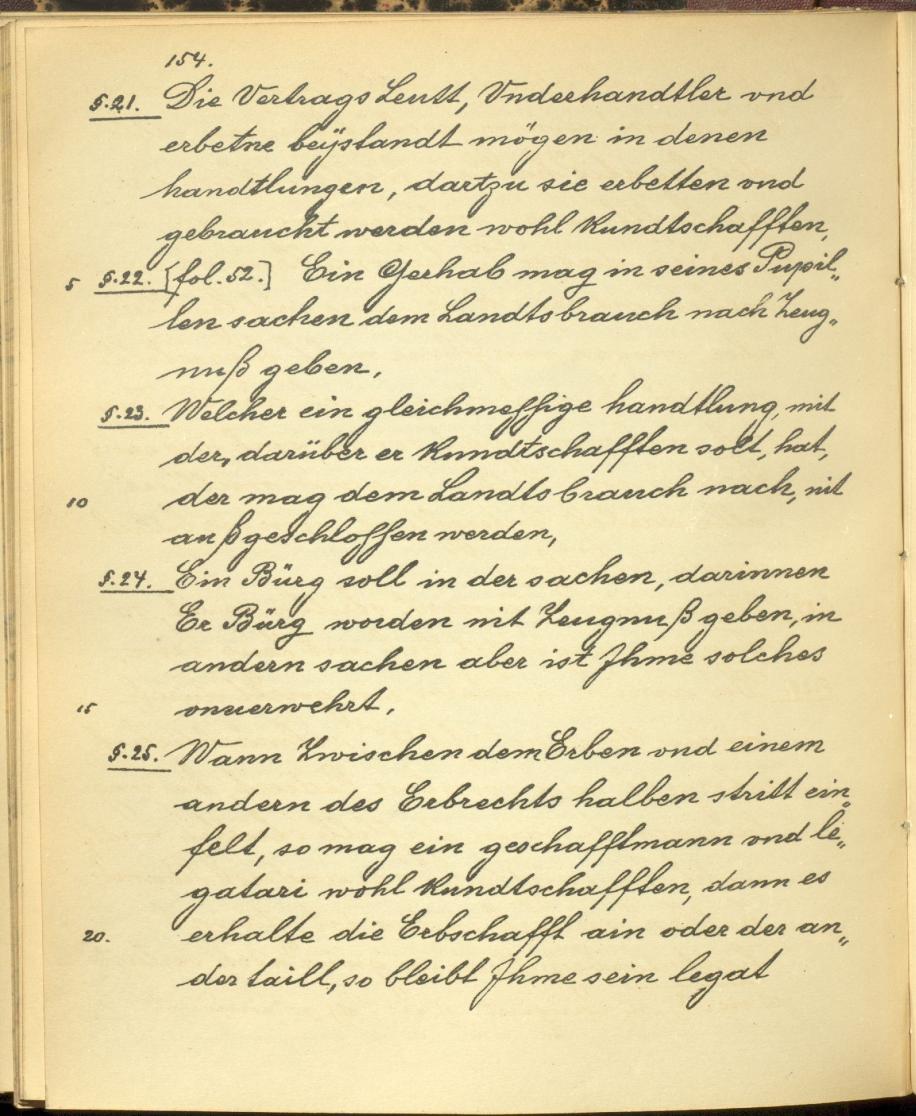 154.
§.21. Die Vertrags Leutt, Vnderhandtler vnd
erbetne beÿstandt mögen in denen
handtlungen, dartzu sie erbetten vnd
gebraucht werden wohl Kundtschafften,
5 §.22. [fol.52.] Ein Gerhab mag in seines Pupil„
len sachen dem Landtsbrauch nach Zeug„
nuß geben,
§.23. Welcher ein gleichmessige handtlung, mit
der, darüber er Kundtschafften solt, hat,
10 der mag dem Landtsbrauch nach, nit
außgeschlossen werden,
§.24. Ein Bürg soll in der sachen, darinnen
Er Bürg worden nit Zeugnuß geben, in
andern sachen aber ist Jhme solches
15 onuerwehrt,
§.25. Wann Zwischen dem Erben vnd einem
andern des Erbrechts halben stritt ein„
felt, so mag ein geschafftmann vnd le„
gatari wohl Kundtschafften, dann es
20. erhalte die Erbschafft ain oder der an„
der taill, so bleibt Jhme sein legat